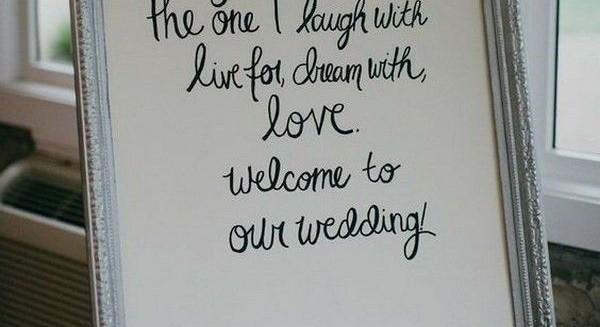 the one I laugh with
live for, dream with,
love.
welcome to
our wedding!